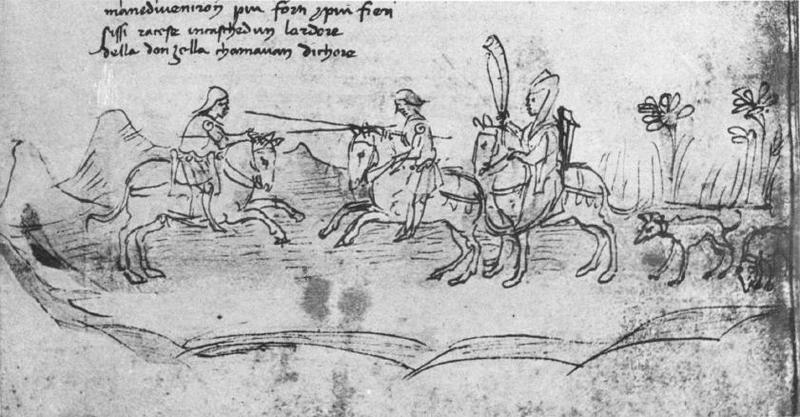 ma nedivention piu forti ypiu fieri
sissi racese incaschedun lardore
della donzella chamavan dichore